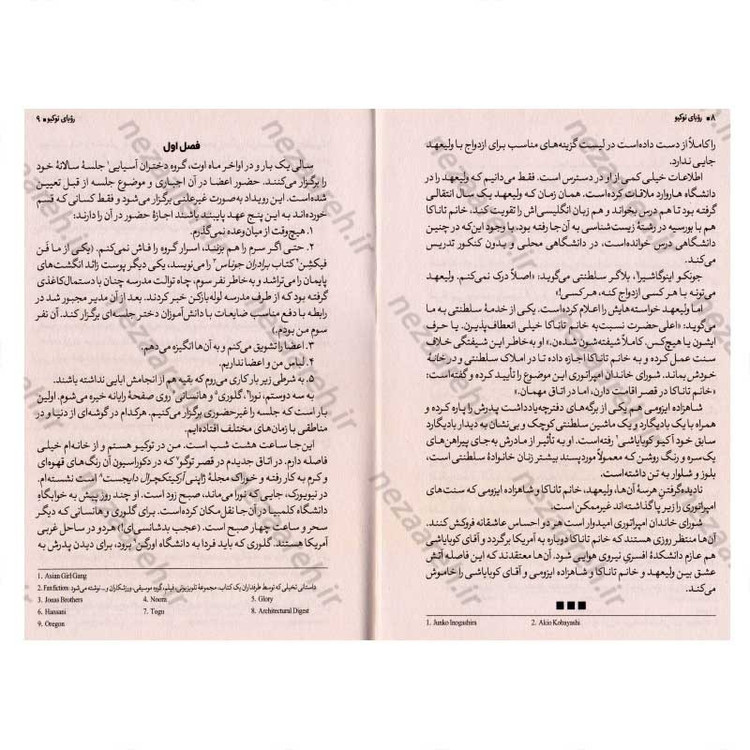 ۸ ■ رؤیای توکیو
را کاملاً از دست داده‌است در لیست گزینه‌های مناسب برای ازدواج با ولیعهد
جایی ندارد.
اطلاعات خیلی کمی از او در دسترس است. فقط می‌دانیم که ولیعهد را در
دانشگاه هاروارد ملاقات کرده‌است. همان زمان که ولیعهد یک سال انتقالی
گرفته بود تا هم درس بخواند و هم زبان انگلیسی‌اش را تقویت کند. خانم تاناکا
هم با بورسیه در رشتهٔ زیست‌شناسی به آن‌جا رفته بود. با وجود این‌که در چنین
دانشگاهی درس خوانده‌است، در دانشگاهی محلی و بدون کنکور تدریس
می‌کند.
جونکو اینوگاشیرا۱، بلاگر سلطنتی می‌گوید: «اصلاً درک نمی‌کنم. ولیعهد
می‌تونه با هر کسی ازدواج کنه، هر کسی!»
اما ولیعهد خواسته‌هایش را اعلام کرده‌است. یکی از خدمهٔ سلطنتی به ما
می‌گوید: «اعلی‌حضرت نسبت‌به خانم تاناکا خیلی انعطاف‌پذیرن. یا حرف
ایشون یا هیچ‌کس. کاملاً شیفته‌شون شده‌ن.» او به‌خاطر این شیفتگی خلاف
سنت عمل کرده و به خانم تاناکا اجازه داده تا در املاک سلطنتی و در خانهٔ
خودش بماند. شورای خاندان امپراتوری این موضوع را تأیید کرده و گفته‌است:
«خانم تاناکا در قصر اقامت دارن، اما در اتاق مهمان.»
شاهزاده ایزومی هم یکی از برگه‌های دفترچه‌یادداشت پدرش را پاره کرده و
همراه با یک بادیگارد و یک ماشین سلطنتی کوچک و بی‌نشان به دیدار بادیگارد
سابق خود آکیو کوبایاشی۲ رفته‌است. او به تأثیر از مادرش به‌جای پیراهن‌های
یک‌سره و رنگ روشن که معمولاً موردپسند بیشتر زنان خانوادهٔ سلطنتی است،
بلوز و شلوار به تن داشته‌است.
نادیده‌گرفتن هرسهٔ آن‌ها، ولیعهد، خانم تاناکا و شاهزاده ایزومی که سنت‌های
امپراتوری را زیر پا گذاشته‌اند غیرممکن است.
شورای خاندان امپراتوری امیدوار است هر دو احساس عاشقانه فروکش کنند.
آن‌ها منتظر روزی هستند که خانم تاناکا دوباره به آمریکا برگردد و آقای کوبایاشی
هم عازم دانشکدهٔ افسری نیروی هوایی شود. آن‌ها معتقدند که این فاصله آتش
عشق بین ولیعهد و خانم تاناکا و شاهزاده ایزومی و آقای کوبایاشی را خاموش
می‌کند.
1. Junko Inogashira 2. Akio Kobayashi
رؤیای توکیو ■ ۹
فصل اول
سالی یک بار و در اواخر ماه اوت، گروه دختران آسیایی۱ جلسهٔ سالانهٔ خود
را برگزار می‌کنند. حضور اعضا در آن اجباری و موضوع جلسه از قبل تعیین
شده‌است. این رویداد به‌صورت غیرعلنی برگزار می‌شود و فقط کسانی که قسم
خورده‌اند به این پنج عهد پایبند باشند اجازهٔ حضور در آن را دارند:
۱. هیچ‌وقت از میان وعده نمی‌گذرم.
۲. حتی اگر سرم را هم بزنند، اسرار گروه را فاش نمی‌کنم. (یکی از ما فَن
فیکشِن۲ کتاب برادران جوناس۳ را می‌نویسد، یکی دیگر پوست زائد انگشت‌های
پایمان را می‌تراشد و به‌خاطر نفر سوم، چاه توالت مدرسه چنان با دستمال‌کاغذی
گرفته بود که از طرف مدرسه لوله‌بازکن خبر کردند. بعد از آن مدیر مجبور شد در
رابطه با دفع مناسب ضایعات با دانش‌آموزان دختر جلسه‌ای برگزار کند. آن نفر
سوم من بودم.)
۳. اعضا را تشویق می‌کنم و به آن‌ها انگیزه می‌دهم.
۴. لباس من و اعضا نداریم.
۵. به شرطی زیر بار کاری می‌روم که بقیه هم از انجامش ابایی نداشته باشند.
به سه دوستم، نورا۴، گلوری۵ و هانسانی۶ روی صفحهٔ رایانه خیره می‌شوم. اولین
بار است که جلسه را غیرحضوری برگزار می‌کنیم. هرکدام در گوشه‌ای از دنیا و در
مناطقی با زمان‌های مختلف افتاده‌ایم.
این‌جا ساعت هشت شب است. من در توکیو هستم و از خانه‌ام خیلی
فاصله دارم. در اتاق جدیدم در قصر توگو۷ که در دکوراسیون آن رنگ‌های قهوه‌ای
و کرم به کار رفته و خوراک مجلهٔ ژاپنی آرکیتکچرال دایجست۸ است نشسته‌ام.
در نیویورک، جایی که نورا می‌ماند، صبح زود است. او چند روز پیش به خوابگاه
دانشگاه کلمبیا در آن‌جا نقل‌مکان کرده‌است. برای گلوری و هانسانی که دیگر
سحر و ساعت چهار صبح است. (عجب بدشانسی‌ای!) هر دو در ساحل غربی
آمریکا هستند. گلوری که باید فردا به دانشگاه اورگن۹ برود، برای دیدن پدرش به
1. Asian Girl Gang
2. Fan fiction: داستانی تخیلی که توسط طرفداران یک کتاب، مجموعهٔ تلویزیونی، فیلم، گروه موسیقی، ورزشکاران و... نوشته می‌شود.
3. Jonas Brothers 4. Noora 5. Glory
6. Hansani 7. Togu 8. Architectural Digest
9. Oregon
nezaareh.ir